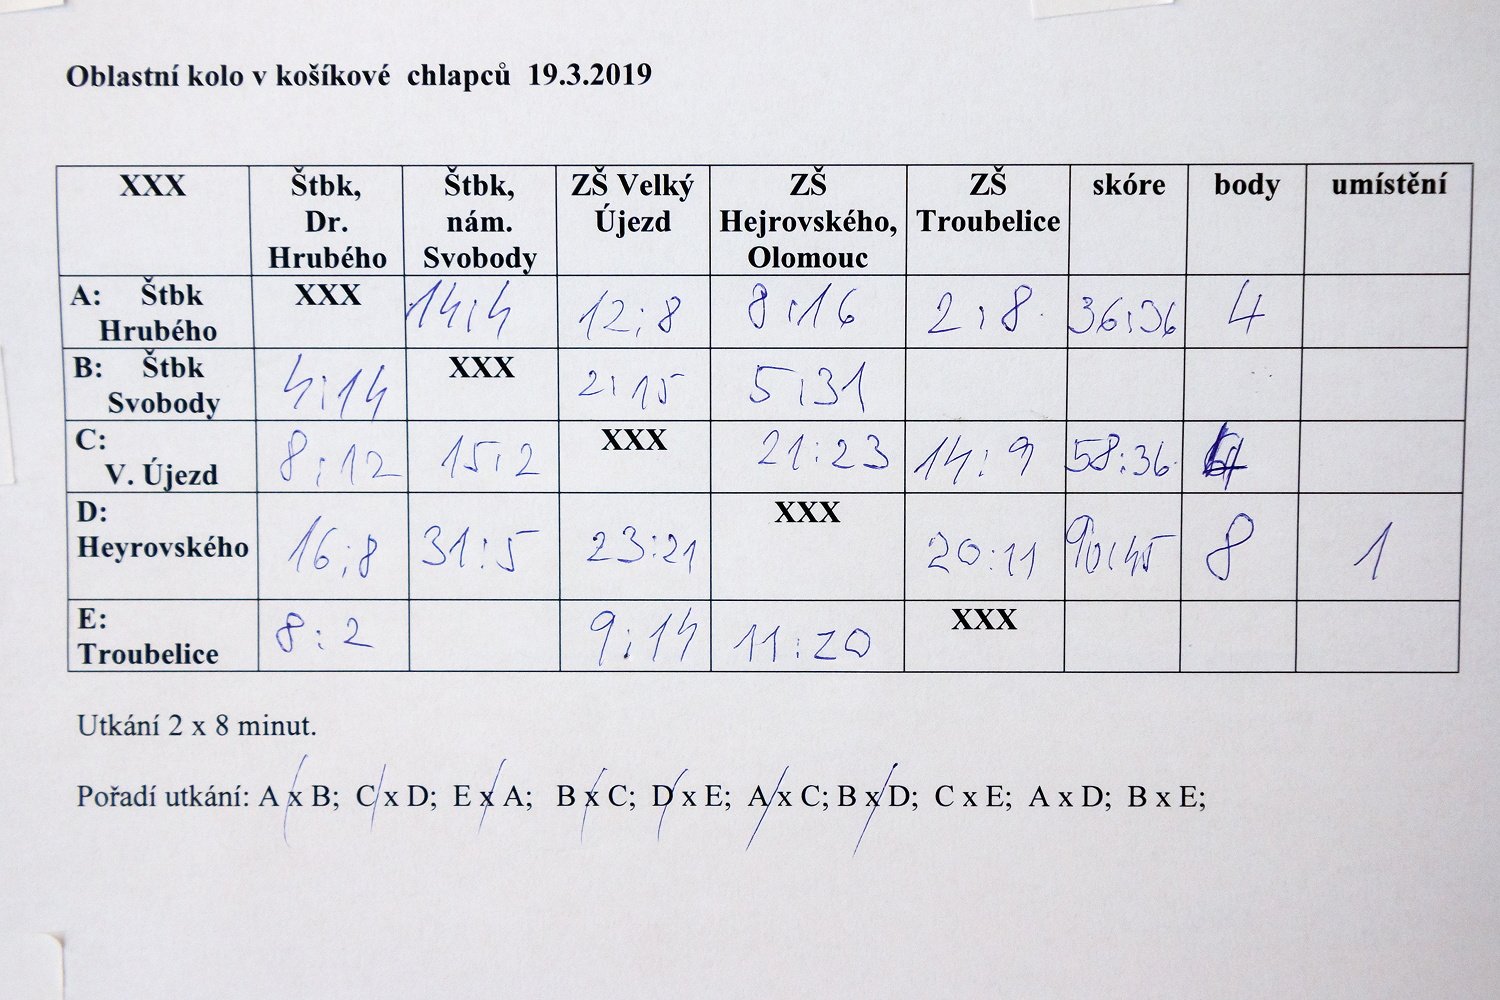 Oblastní kolo v košíkové chlapců 19.3.2019
XXX Štbk, Dr. Hrubého Štbk, nám. Svobody ZŠ Velký Újezd ZŠ Hejrovského, Olomouc ZŠ Troubelice skóre body umístění
A: Štbk Hrubého XXX 14:4 12:8 8:16 2:8 36:36 4
B: Štbk Svobody 4:14 XXX 2:15 5:31
C: V. Újezd 8:12 15:2 XXX 21:23 14:9 58:36 4
D: Heyrovského 16:8 31:5 23:21 XXX 20:11 90:45 8 1
E: Troubelice 8:2 9:14 11:20 XXX
Utkání 2 x 8 minut.
Pořadí utkání: A x B; C x D; E x A; B x C; D x E; A x C; B x D; C x E; A x D; B x E;